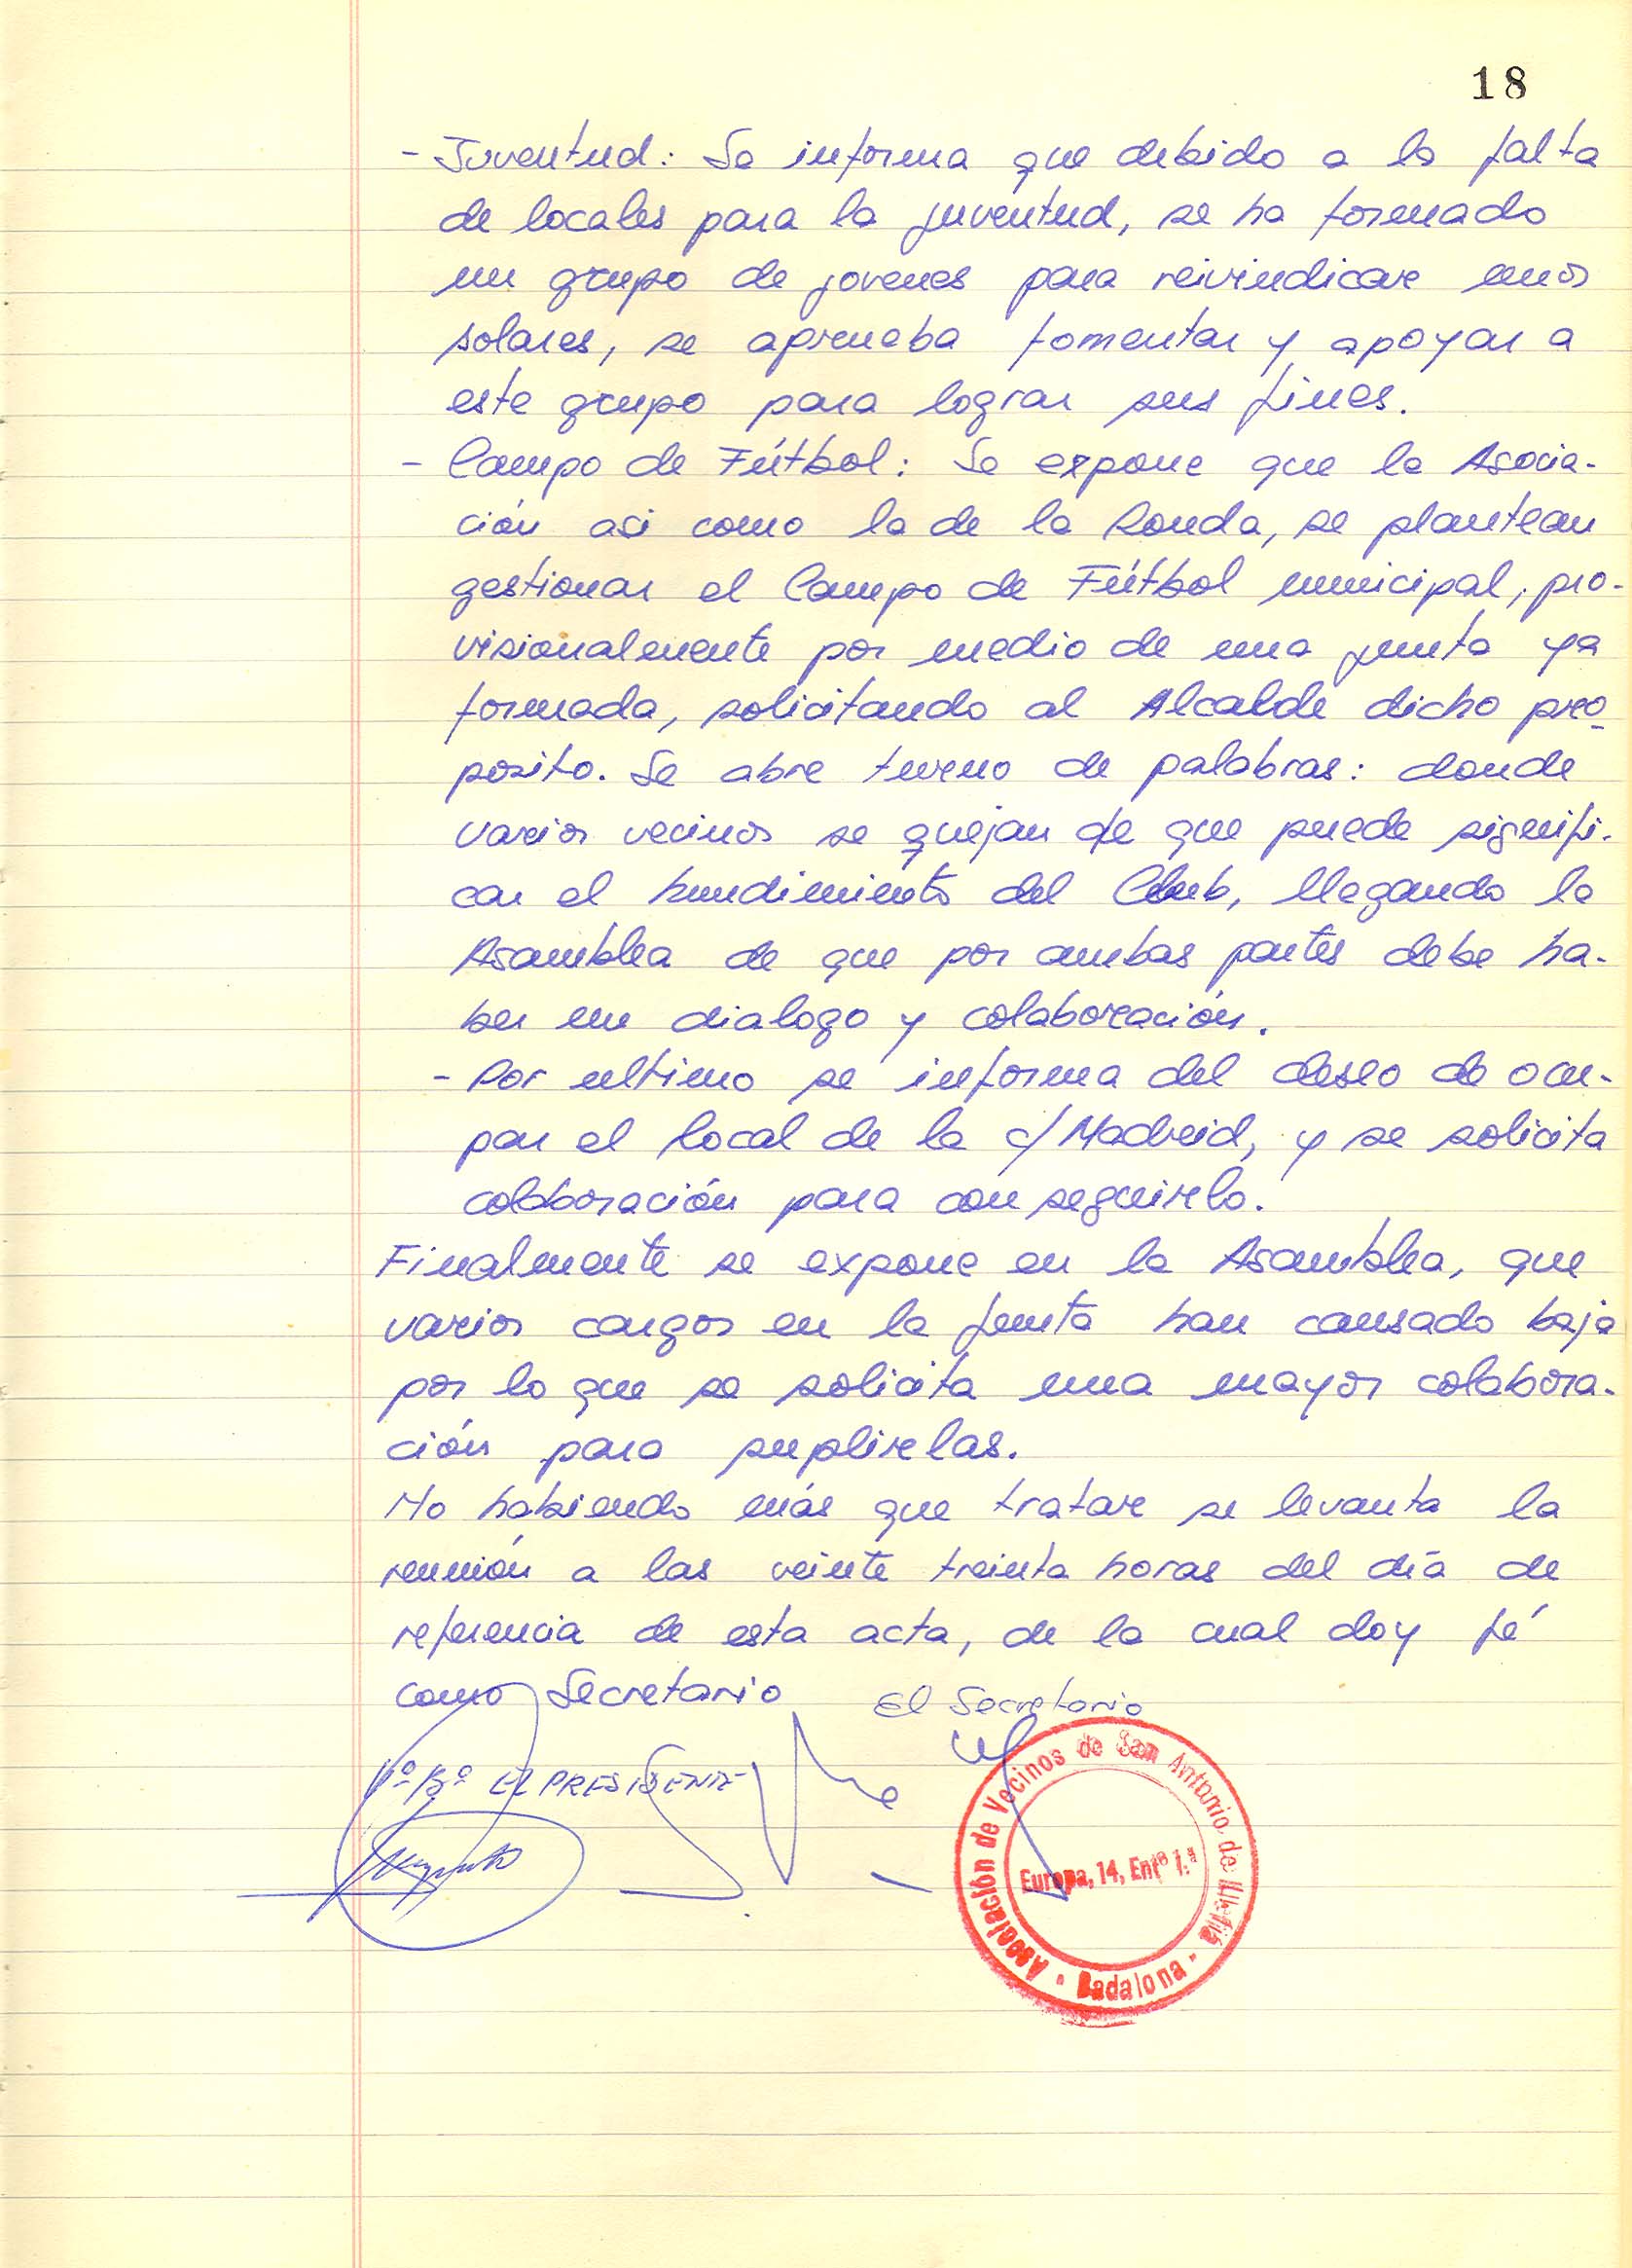 18
- Juventud: Se informa que debido a la falta
de locales para la juventud, se ha formado
un grupo de jovenes para reivindicar unos
solares, se aprueba fomentar y apoyar a
este grupo para lograr sus fines.
- Campo de Fútbol: Se expone que la Asocia-
ción asi como la de la Ronda, se plantean
gestionar el Campo de Fútbol municipal, pro-
visionalmente por medio de una junta ya
formada, solicitando al Alcalde dicho pro-
posito. Se abre turno de palabras: donde
varios vecinos se quejan de que puede signifi-
car el hundimiento del Club, llegando la
Asamblea de que por ambas partes debe ha-
ber un dialogo y colaboración.
- Por ultimo se informa del deseo de ocu-
par el local de la c/ Madrid, y se solicita
colaboración para conseguirlo.
Finalmente se expone en la Asamblea, que
varios cargos en la junta han causado baja
por lo que se solicita una mayor colabora-
ción para suplirlas.
No habiendo más que tratar se levanta la
reunión a las veinte treinta horas del día de
referencia de esta acta, de la cual doy fé
como Secretario El Secretario
Vº Bº El PRESIDENTE
Asociación de Vecinos de San Antonio de Llefiá · Badalona ·
Europa, 14, Entº 1.ª